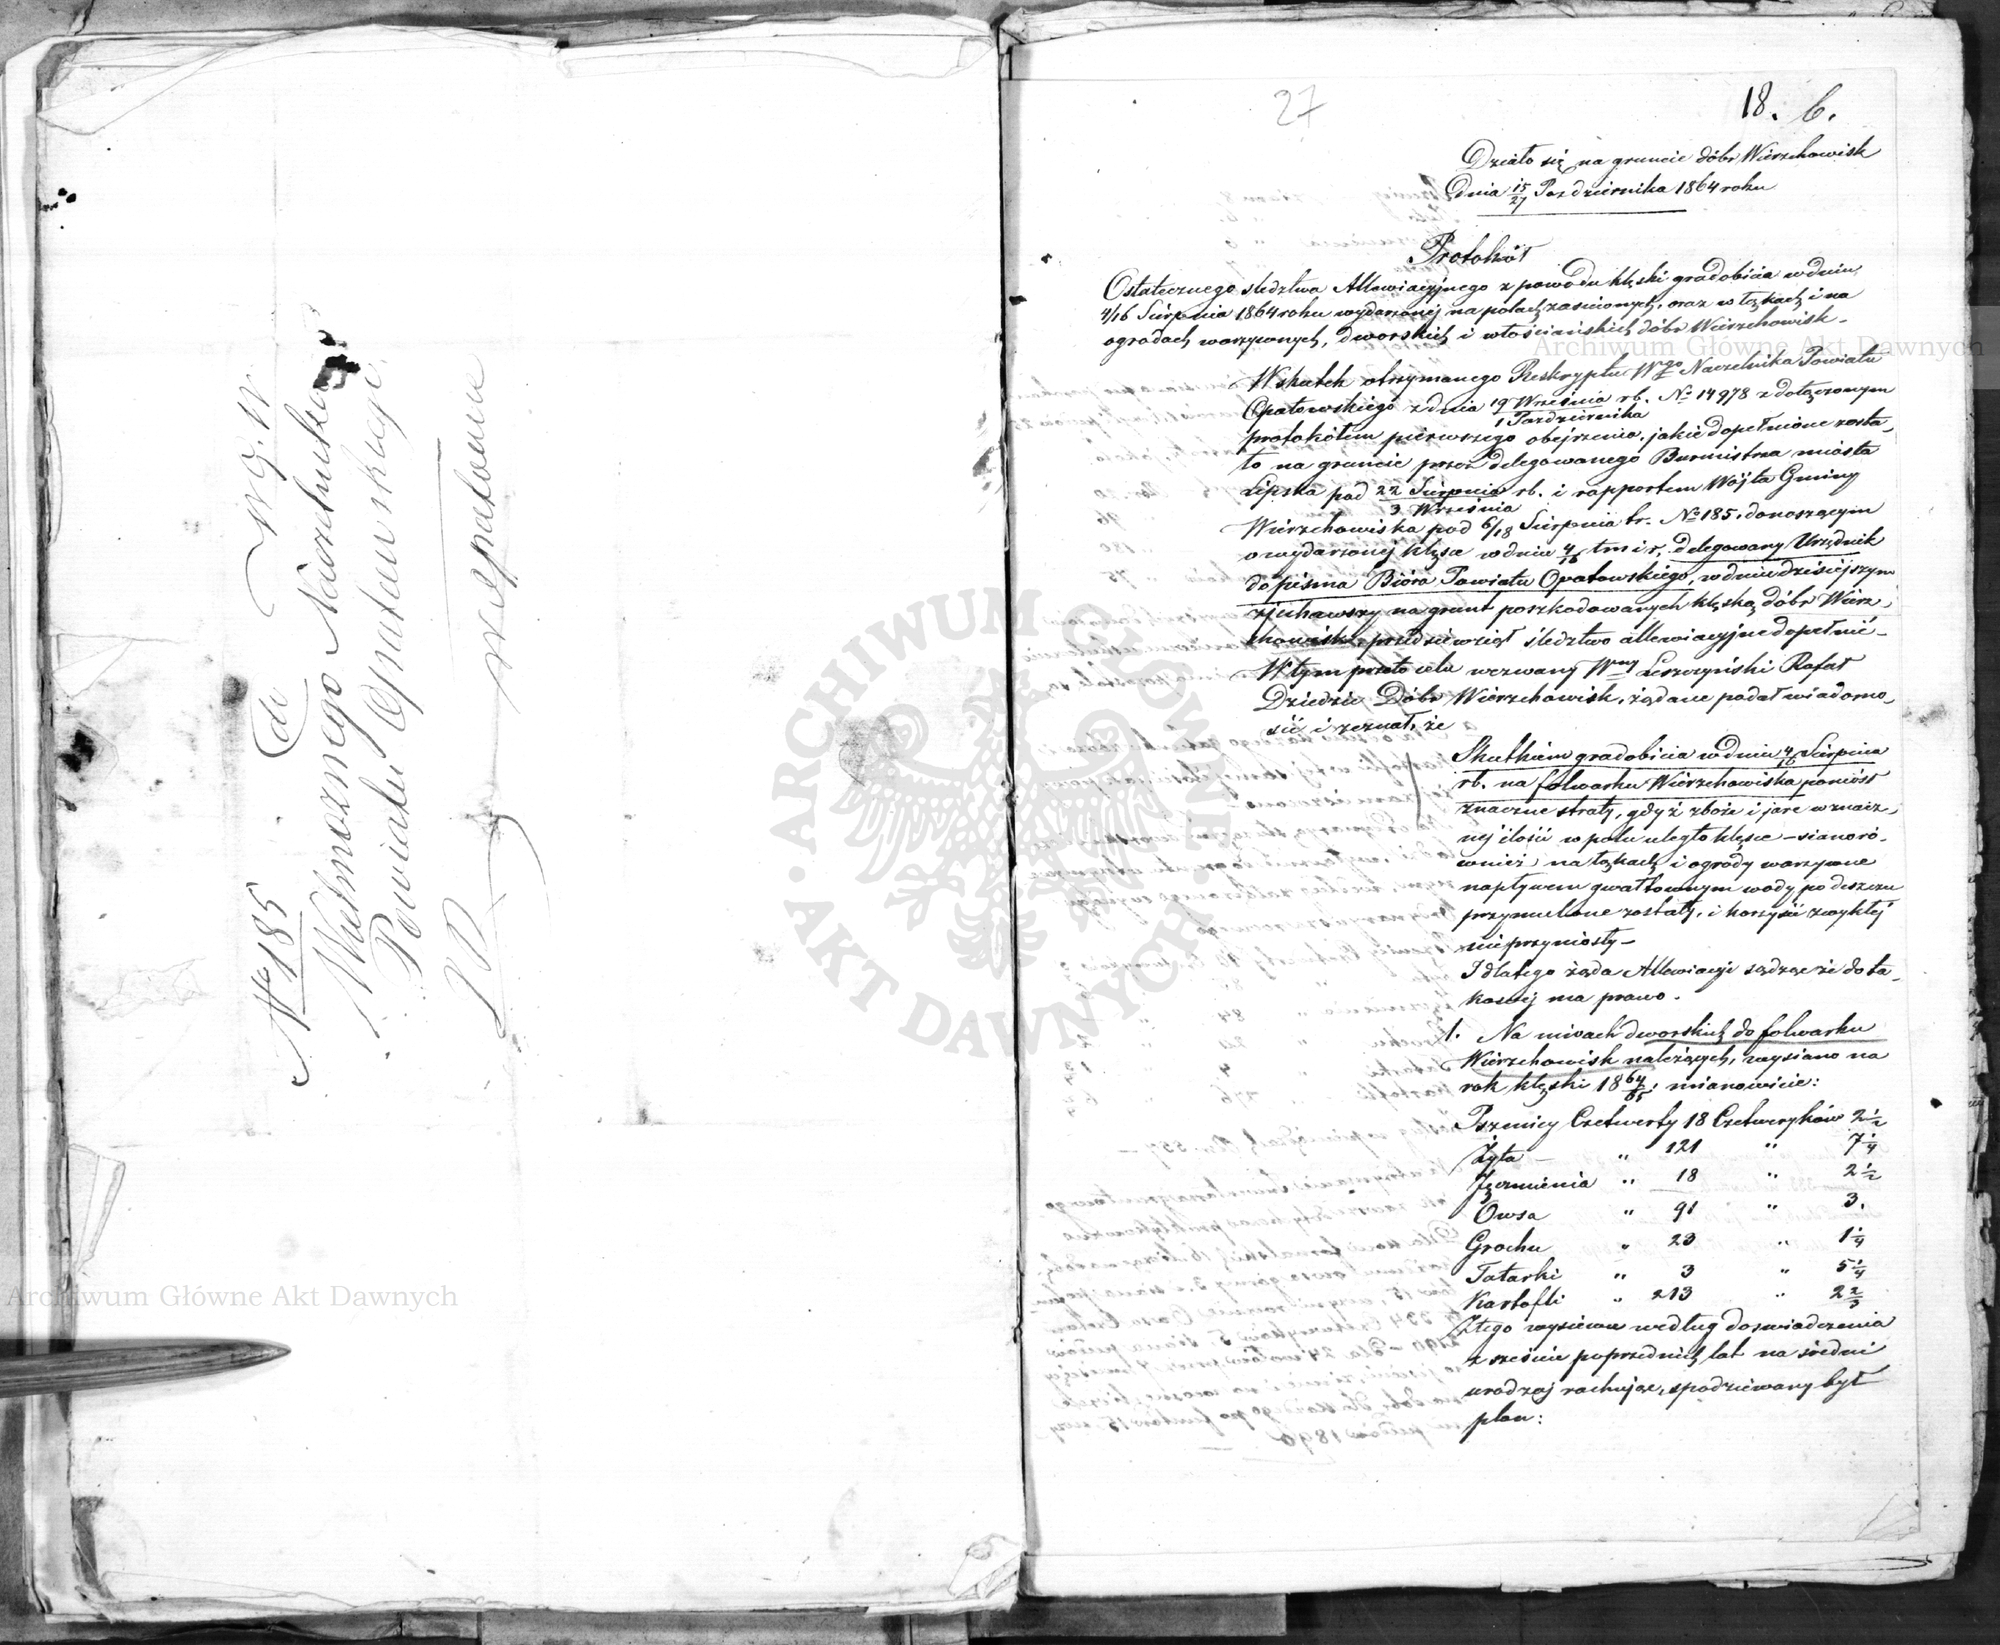 W. G. W.
№ 185 do
Wielmożnego Naczelnika
Powiatu Opatowskiego
w Opatowie
27
18. b.
Działo się na gruncie dóbr Wierzchowisk
Dnia 15/27 Października 1864 roku
Protokół
Ostatecznego śledztwa Allewiacyjnego z powodu klęski gradobicia w dniu
4/16 Sierpnia 1864 roku wydarzonej na polach zasianych, oraz w łąkach i na
ogrodach warzywnych, dworskich i włościańskich dóbr Wierzchowisk –
W skutek otrzymanego Reskryptu Wgo Naczelnika Powiatu
Opatowskiego z dnia 19 Września / 1 Października rb. № 14978 z dołączonym
protokółem pierwszego obejrzenia, jakie dopełnione zosta-
ło na gruncie przez delegowanego Burmistrza miasta
Lipska pod 22 Sierpnia / 3 Września rb. i rapportem Wójta Gminy
Wierzchowiska pod 6/18 Sierpnia br. № 185. donoszącym
o wydarzonej klęsce w dniu 4/16 t m i r, delegowany Urzędnik
do pisma Bióra Powiatu Opatowskiego, w dniu dzisiejszym
zjechawszy na grunt poszkodowanych klęską dóbr Wierz-
chowisk, przedsięwziął śledztwo allewiacyjne dopełnić –
W tym przeto celu wezwany Wny Leszczyński Rafał
Dziedzic Dóbr Wierzchowisk, żądane podał wiadomo-
ści i zeznał, że
Skutkiem gradobicia w dniu 4/16 Sierpnia
rb. na folwarku Wierzchowiska poniósł
znaczne straty, gdyż zboże i jare w znacz-
nej ilości w polu uległo klęsce – siano ró-
wnież na łąkach i ogrody warzywne
napływem gwałtownym wody po deszczu
przymulone zostały, i korzyści zwykłej
nie przyniosły –
I dlatego żąda Allewiacyi sądząc że do ta-
kowej ma prawo.
1. Na niwach dworskich do folwarku
Wierzchowisk należących, wysiano na
rok klęski 1864/65, mianowicie:
Pszenicy Czetwerty 18 Czetweryków 2 1/2
Żyta – " 121 " 7 1/4
Jęczmienia " 18 " 2 1/2
Owsa " 91 " 3,
Grochu " 23 " 1 1/4
Tatarki " 3 " 5 1/4
Kartofli " 213 " 2 2/3
Z tego wysiewu według doświadczenia
z sześciu poprzednich lat na średni
urodzaj rachując, spodziewany był
plon:
Archiwum Główne Akt Dawnych
Archiwum Główne Akt Dawnych
ARCHIWUM GŁÓWNE AKT DAWNYCH